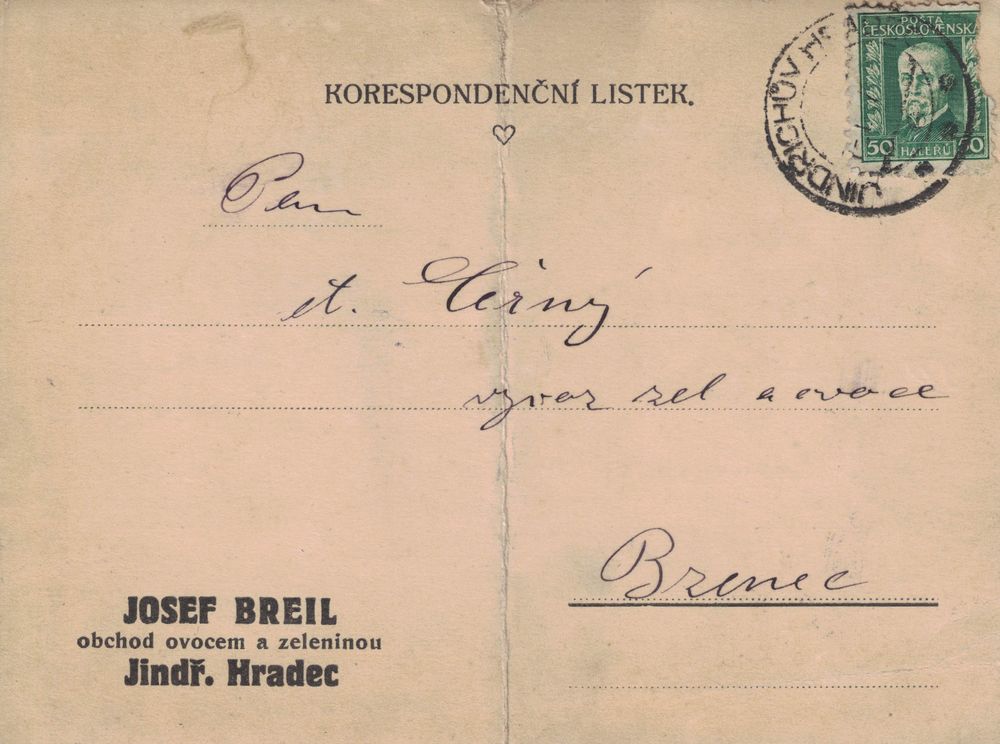 KORESPONDENČNÍ LISTEK.
POŠTA
ČESKOSLOVENSKÁ
50 HALÉŘŮ 50
JINDŘICHŮV HRADEC
Pan
st. Černý
vývoz zel a ovoce
Bzenec
JOSEF BREIL
obchod ovocem a zeleninou
Jindř. Hradec